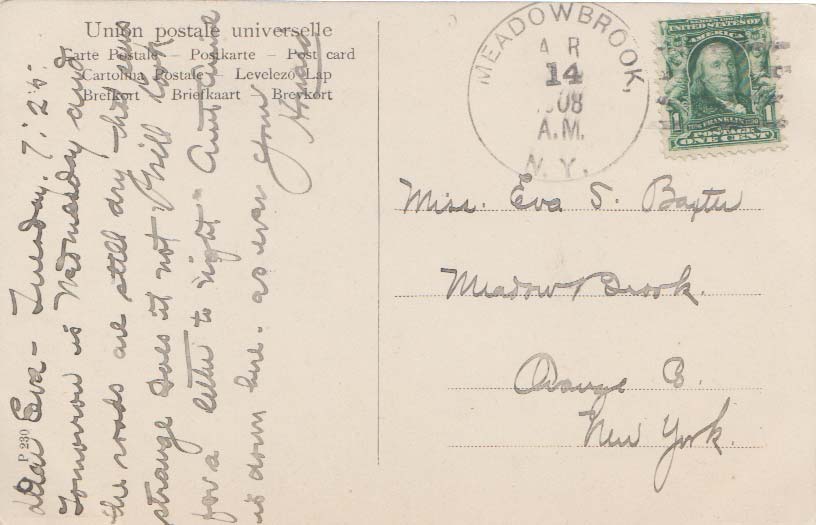 Union postale universelle
Carte Postale — Postkarte — Post card
Cartolina Postale — Levelező Lap
Brefkort — Briefkaart — Brevkort
MEADOWBROOK,
A R
14
1908
A.M.
N.Y.
UNITED STATES OF
AMERICA
FRANKLIN
1 1
POSTAGE
ONE CENT
Miss. Eva S. Baxter
Meadow Brook.
Orange C.
New York.
P 230
Dear Eva – Tuesday. 7:25.
Tomorrow is Wednesday and
the roads are still dry – but
strange does it not I will look
for a letter to night – Aunt
is down here. as ever your